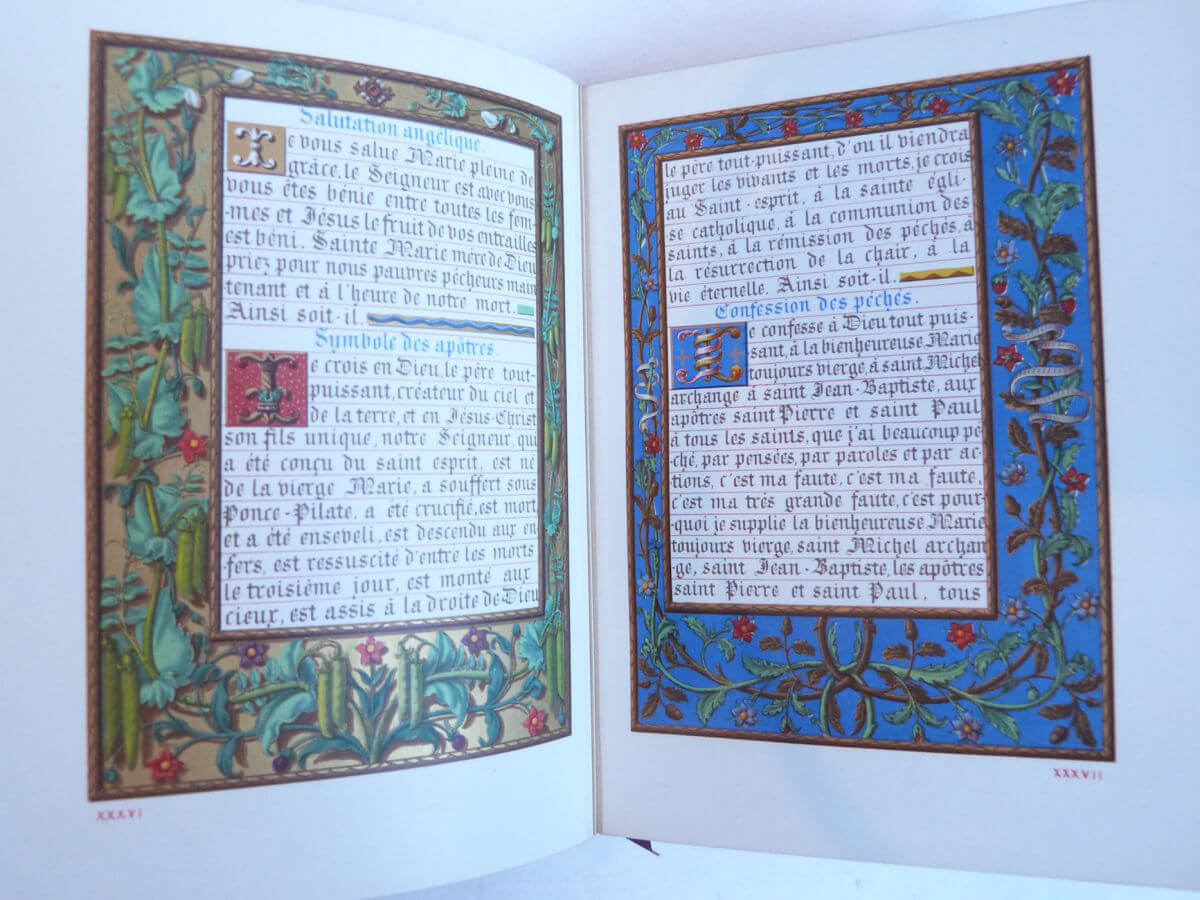 Salutation angélique.
Je vous salue Marie pleine de
grâce, le Seigneur est avec vous
vous êtes bénie entre toutes les fem-
·mes et Jésus le fruit de vos entrailles
est béni. Sainte Marie mère de Dieu
priez pour nous pauvres pécheurs main
tenant et à l'heure de notre mort.
Ainsi soit-il.
Symbole des apôtres.
Je crois en Dieu, le père tout-
puissant, créateur du ciel et
de la terre, et en Jésus-Christ
son fils unique, notre Seigneur, qui
a été conçu du saint esprit, est né
de la vierge Marie, a souffert sous
Ponce-Pilate, a été crucifié, est mort
et a été enseveli, est descendu aux en
fers, est ressuscité d'entre les morts
le troisième jour, est monté aux
cieux, est assis à la droite de Dieu
XXXVI
le père tout-puissant, d'ou il viendra
juger les vivants et les morts, je crois
au Saint-esprit, á la sainte égli-
·se catholique, á la communion des
saints, á la rémission des péchés, à
la résurrection de la chair, à la
vie éternelle. Ainsi soit-il.
Confession des péchés.
Je confesse à Dieu tout puis-
sant, à la bienheureuse Marie
toujours vierge, à saint Michel
archange à saint Jean-Baptiste, aux
apôtres saint Pierre et saint Paul
à tous les saints, que j'ai beaucoup pé
ché, par pensées, par paroles et par ac-
tions, c'est ma faute, c'est ma faute,
c'est ma très grande faute, c'est pour-
·quoi je supplie la bienheureuse Marie
toujours vierge, saint Michel archan
·ge, saint Jean-Baptiste, les apôtres
saint Pierre et saint Paul, tous
XXXVII